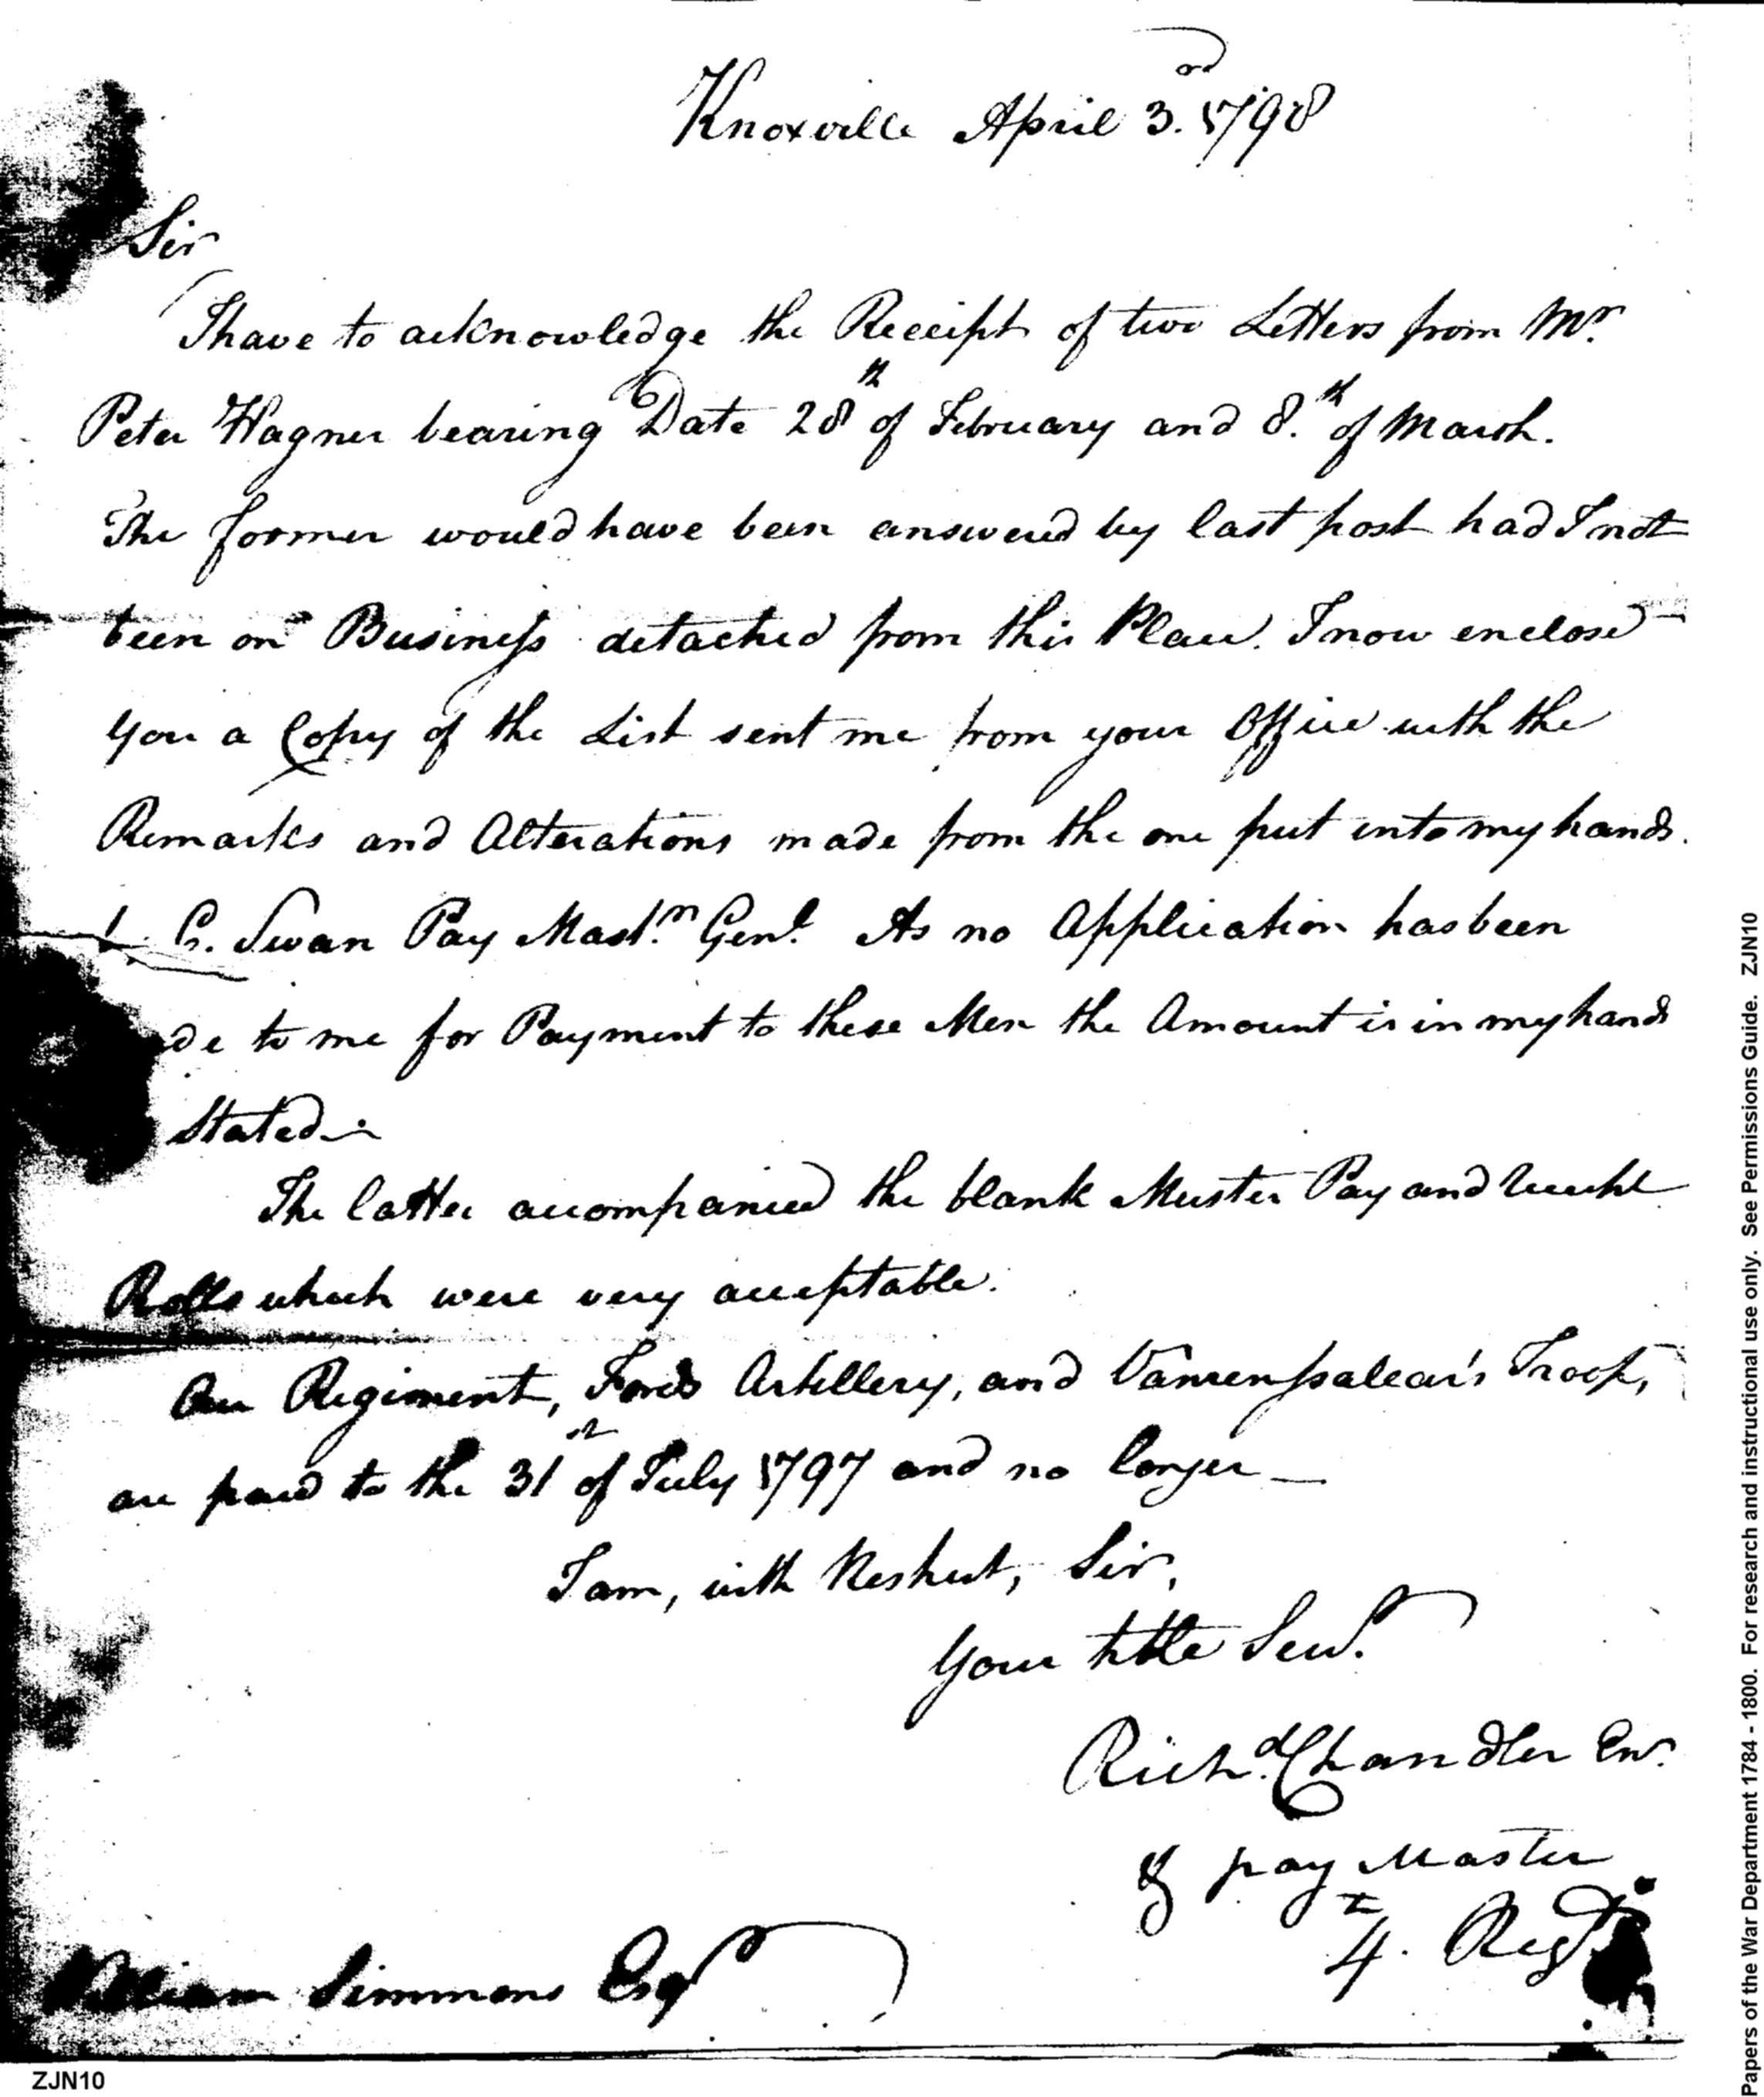 Knoxville April 3.rd 1798
Sir
I have to acknowledge the Receipt of two Letters from Mr.
Peter Hagner bearing Date 28th of February and 8.th of March.
The former would have been answered by last post had I not
been on Business detached from this Place. I now enclose
you a Copy of the List sent me from your Office with the
Remarks and Alterations made from the one put into my hands.
C. Swan Pay Mast.r Genl. As no Application has been
de to me for Payment to these Men the Amount is in my hands
Stated.
The latter accompanied the blank Muster Pay and Receipt
Rolls which were very acceptable.
Our Regiment, Fords Artillery, and Vanrensalear's Troop,
are paid to the 31st of July 1797 and no longer —
I am, with Respect, Sir,
Your Hble Serv.t
Rich.d Chandler
& pay Master
4. Regt.
William Simmons Esqr
ZJN10
Papers of the War Department 1784 - 1800. For research and instructional use only. See Permissions Guide. ZJN10